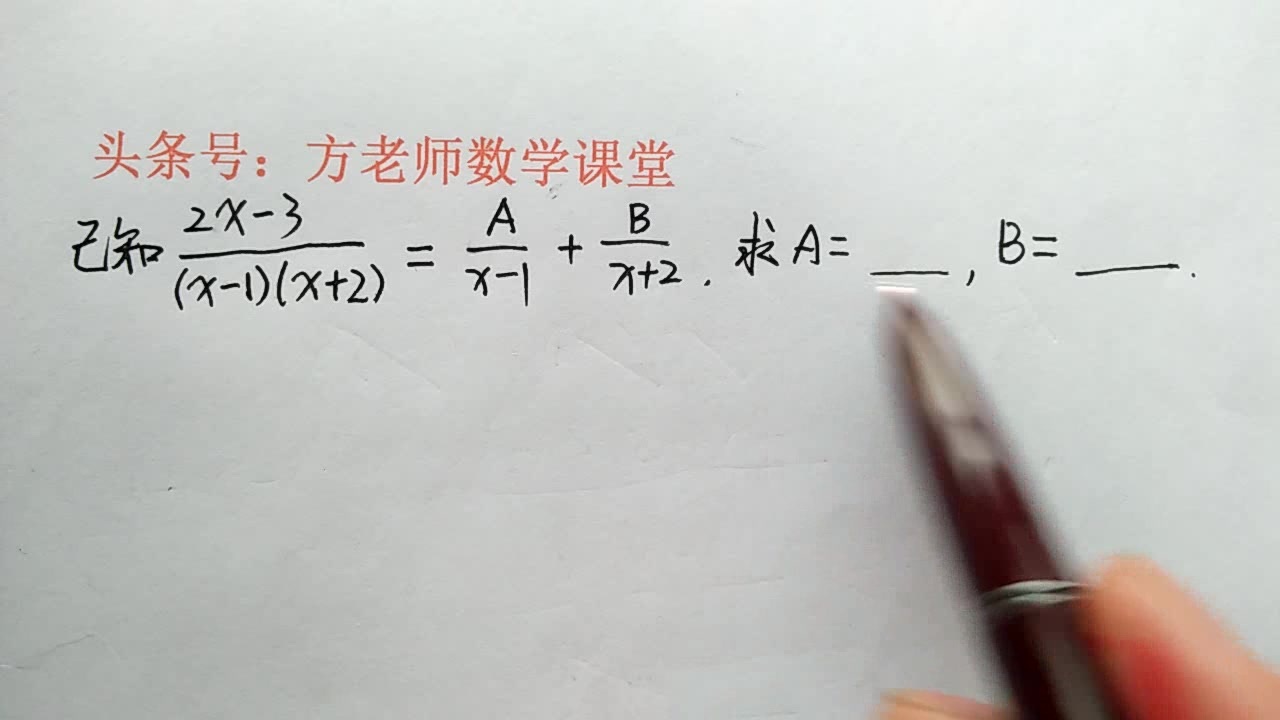 头条号：方老师数学课堂
已知 (2x-3)/((x-1)(x+2)) = A/(x-1) + B/(x+2). 求A= ___, B= ___.